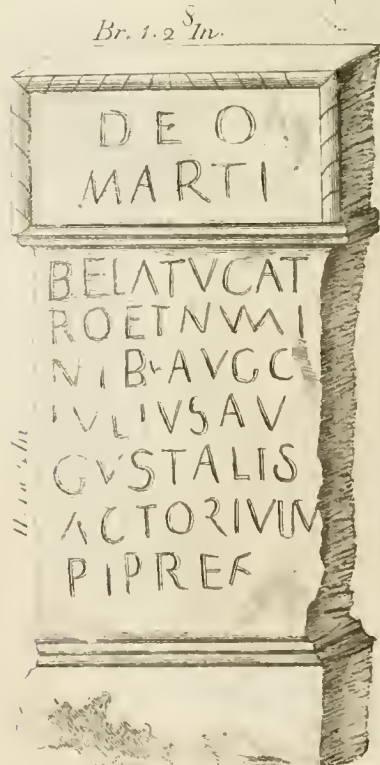 Br. 1. 2 S In.
DEO
MARTI
BELATVCAT
ROETNVMI
NIB·AVGG
IVLIVSAV
GVSTALIS
ACTORIVLIM
PIPREF